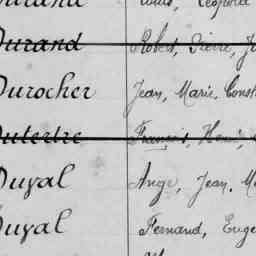 Durand Robert, Pierre, J
Durocher Jean, Marie, Const
Dutertre François, Henri,
Duval Ange, Jean, M
Duval Fernand, Euge